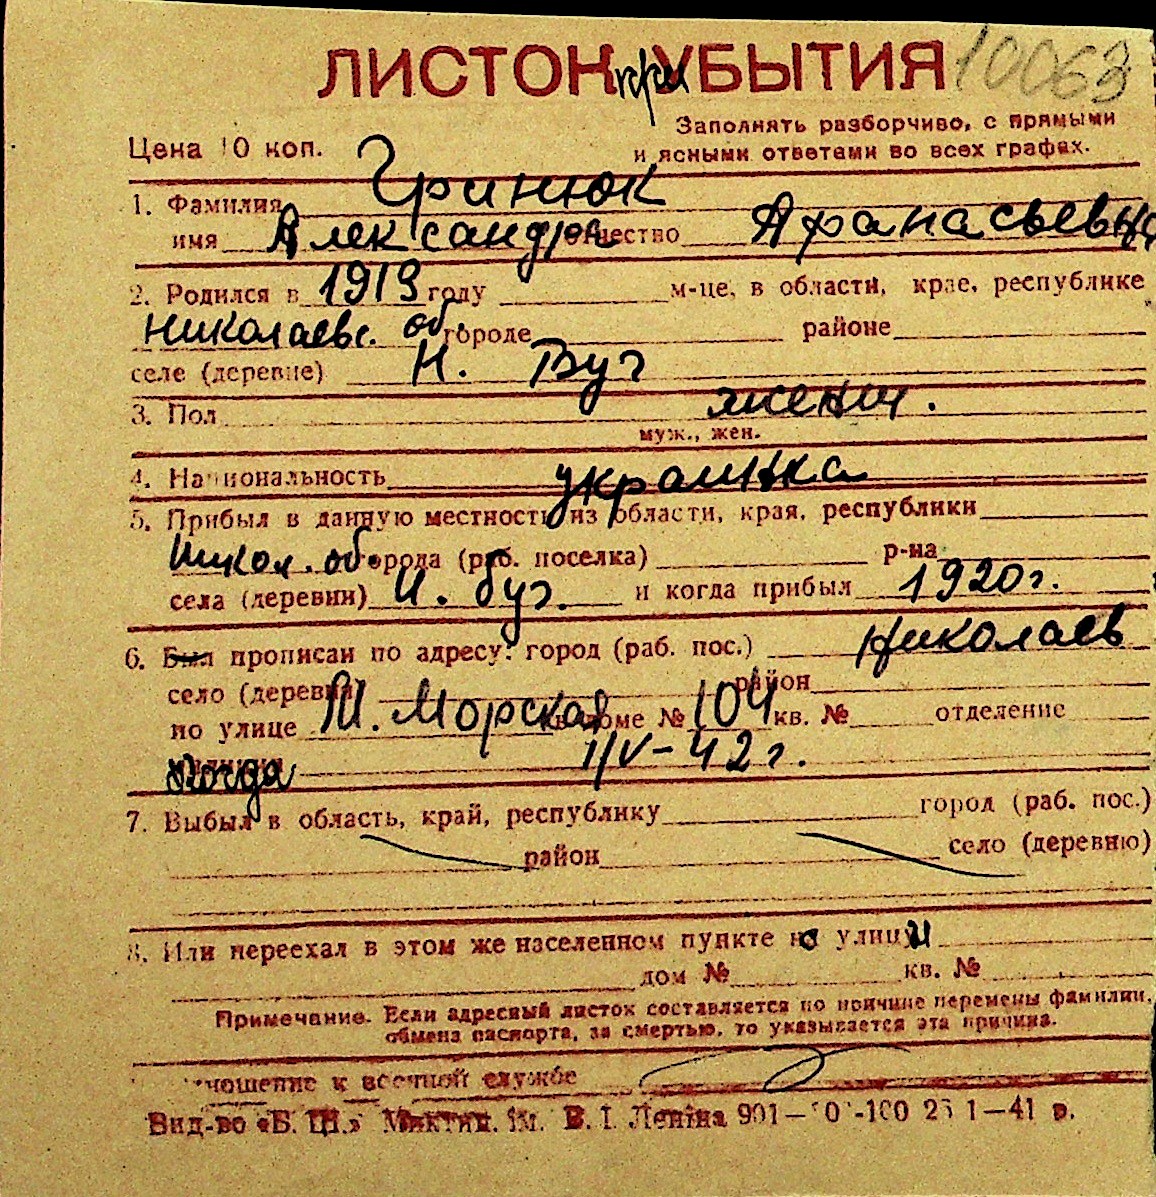 ЛИСТОК при УБЫТИЯ 10063
Заполнять разборчиво, с прямыми
Цена 10 коп. и ясными ответами во всех графах.
1. Фамилия Гринюк
имя Александра отчество Афанасьевна
2. Родился в 1919 году м-це, в области, крае, республике
Николаевс. об. городе районе
селе (деревне) Н. Буг
3. Пол женщ.
муж., жен.
4. Национальность украинка
5. Прибыл в данную местность из области, края, республики
Никол. об. города (раб. поселка) р-на
села (деревни) Н. буг. и когда прибыл 1920г.
6. Был прописан по адресу: город (раб. пос.) Николаев
село (деревня) район
по улице М. Морская в доме № 104 кв. № отделение
милиции Когда 1/V-42г.
7. Выбыл в область, край, республику город (раб. пос.)
район село (деревню)
8. Или переехал в этом же населенном пункте на улицу
дом № кв. №
Примечание. Если адресный листок составляется по причине перемены фамилии,
обмена паспорта, за смертью, то указывается эта причина.
отношение к военной службе
Вид-во «Б. Ш.» МикТип. ім. В. І. Леніна 901— 1—41 р.